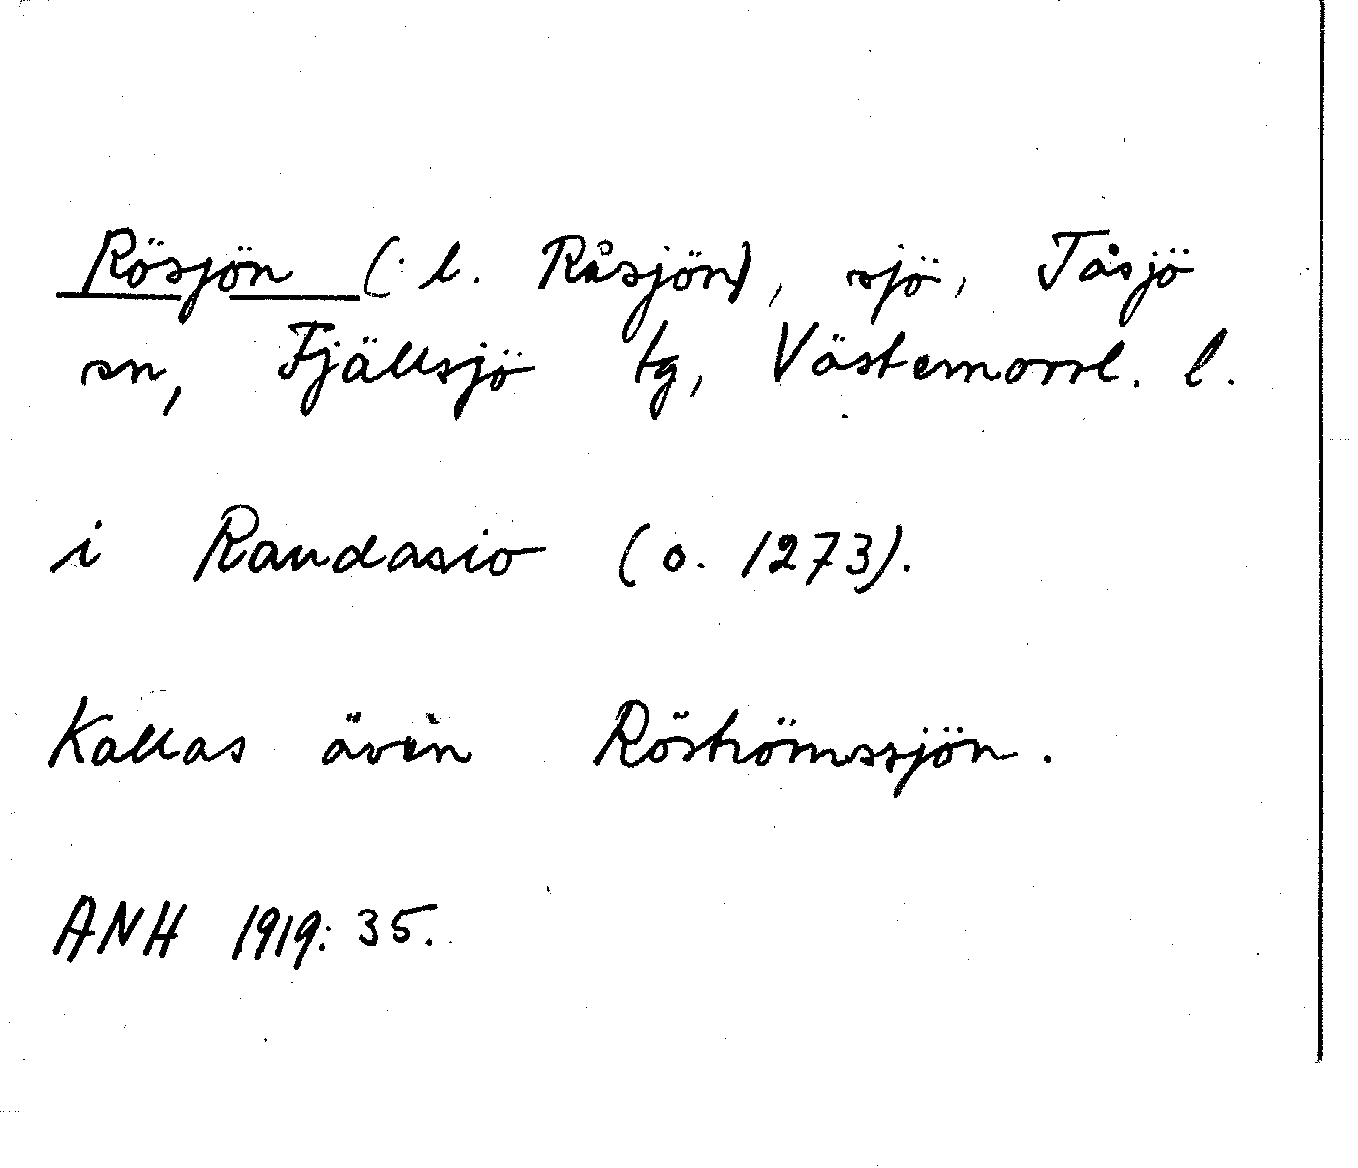 Rösjön (: l. Råsjön), sjö, Tåsjö
sn, Fjällsjö tg, Västernorrl. l.
i Raudasio (o. 1273).
Kallas även Röströmssjön.
ANH 1919: 35.